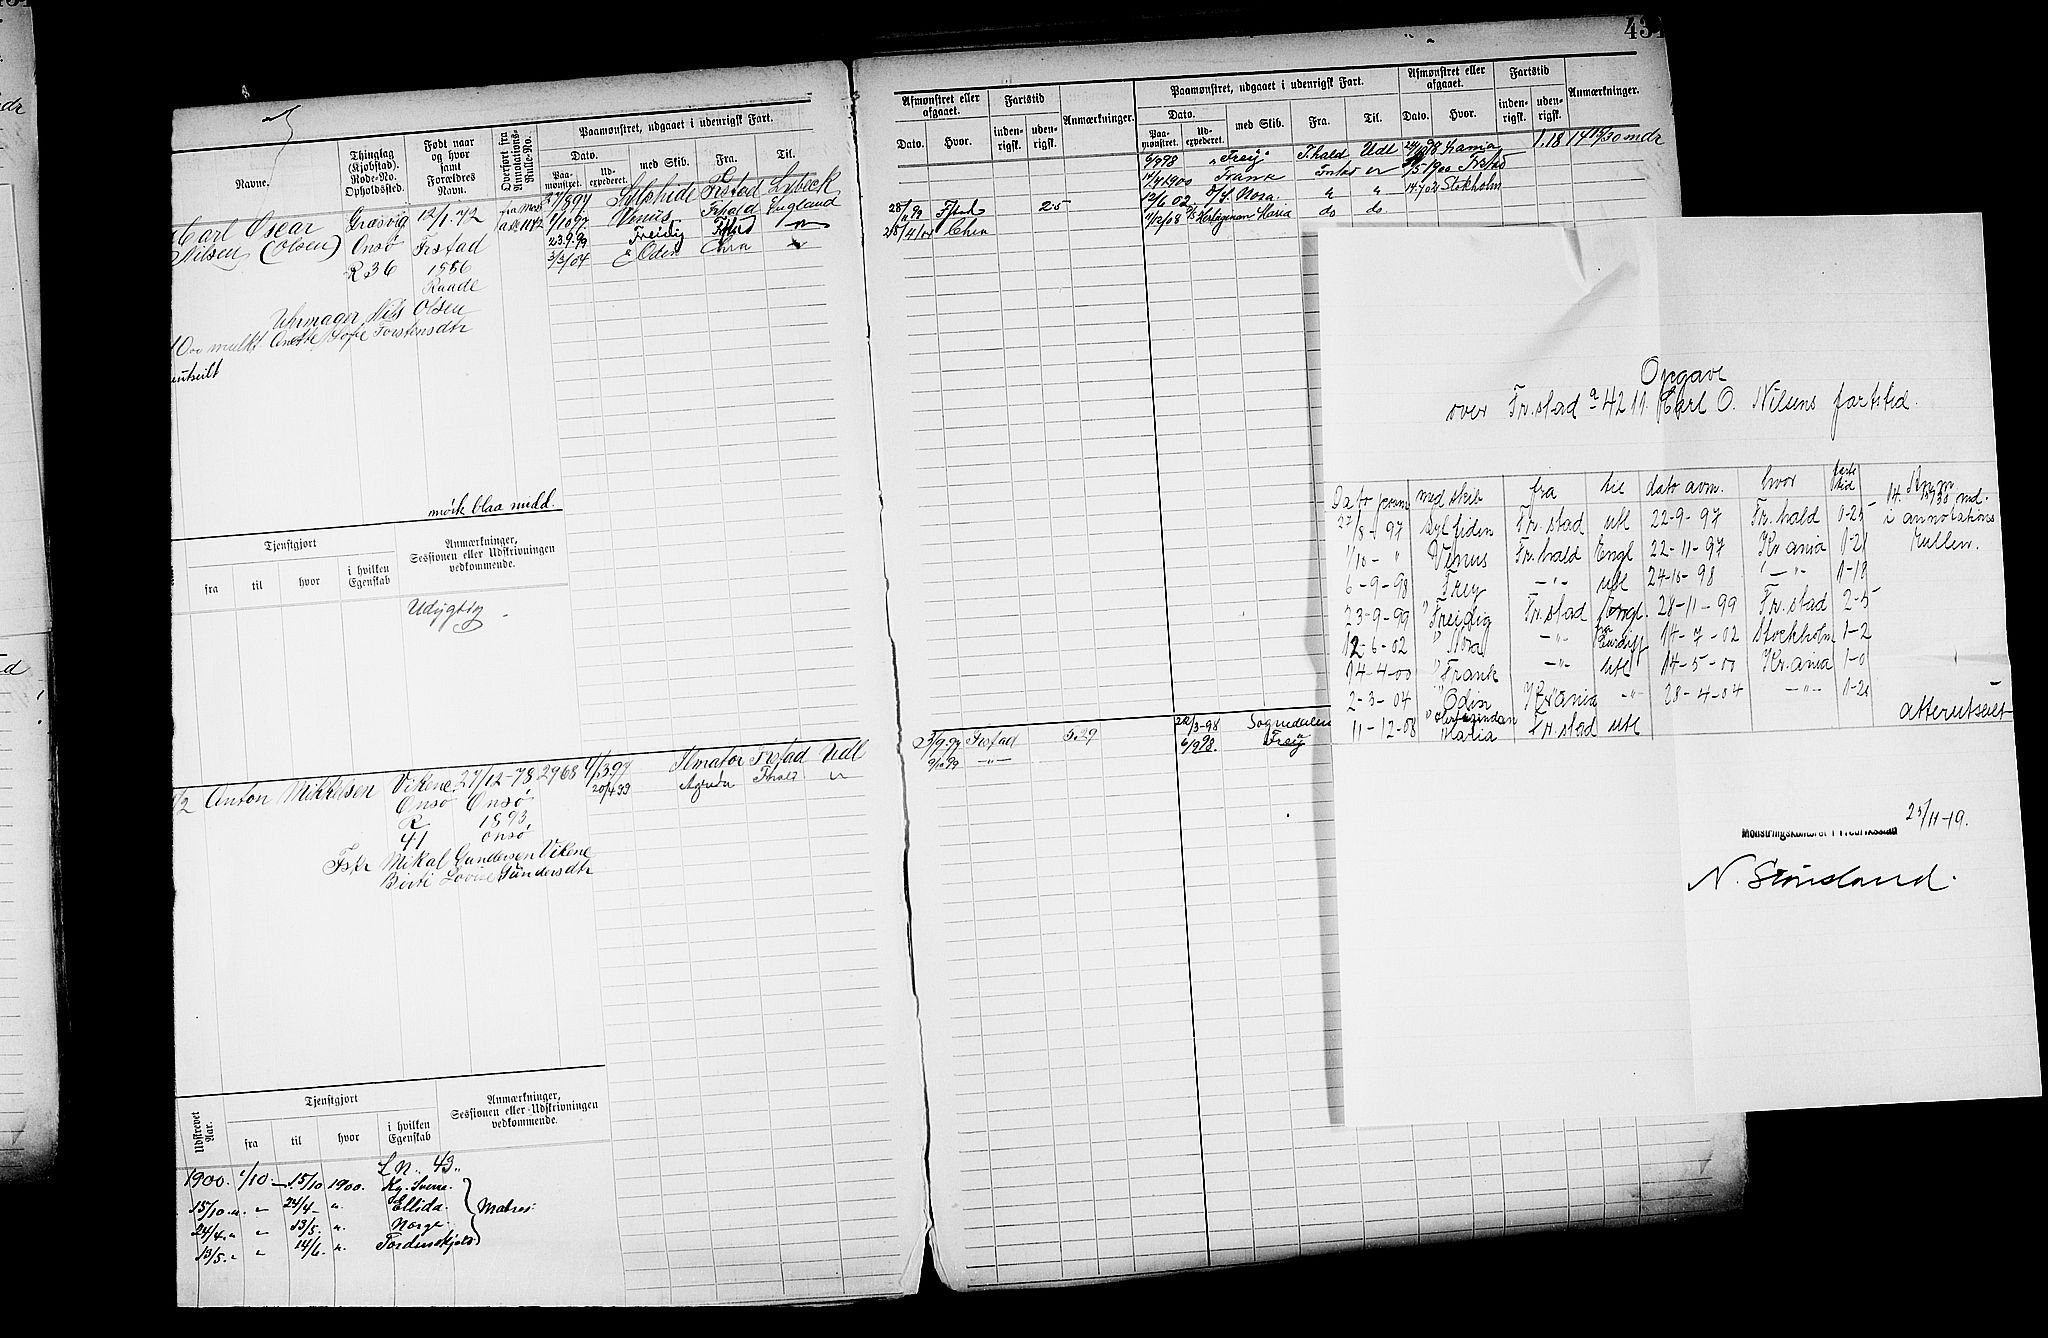 431
Navne.
Thinglag (Kjøbstad). Rode-No. Opholdssted.
Født naar og hvor samt Forældres Navn.
Overført fra Annotations-Rulle-No.
Paamønstret, udgaaet i udenrigsk Fart.
Dato.
Paamønstret.
Udexpederet.
med Skib.
Fra.
Til.
Carl Oscar Græsvig 12/1-72
Nilsen (Olsen) Onsø Frstad
R 36 1886
Raade
Uhrmager Nils Olsen
mulkt Anette Sofie Torstensdtr
27/8 97 Sylphide Frstad Lybeck
1/10 97. Venus Frhald England
23.9.99 Freidig Fstad
3/3/04 Oden Chra
mørk blaa midd.
Tjenstgjort
fra
til
hvor
i hvilken Egenskab
Anmærkninger, Sessionen eller Udskrivningen vedkommende.
Udygtig
Anton Mikkelsen Vikene 27/12-78 2968
Onsø Onsø
R 1893
41 Onsø
Fskr Mikal Gundersen Vikene
Birti Lovise Gundersdtr
4/3 97 Amator Frstad Udl
20/4 99 Agenda Fhald
Udskrevet Aar.
Tjenstgjort
fra
til
hvor
i hvilken Egenskab
Anmærkninger, Sessionen eller Udskrivningen vedkommende.
L N. 43
1900. 1/10 - 15/10 1900. Kg. Sverre.
15/10 " 24/4 - " Ellida. Matros
24/4 " 13/5. " Norge
13/5. " 14/6. " Tordenskjold
Afmønstret eller afgaaet.
Dato.
Hvor.
Fartstid
indenrigsk.
udenrigsk.
Anmærkninger.
Paamønstret, udgaaet i udenrigsk Fart.
Dato.
Paamønstret.
Udexpederet.
med Skib.
Fra.
Til.
Afmønstret eller afgaaet.
Dato.
Hvor.
Fartstid
indenrigsk.
udenrigsk.
Anmærkninger.
6/9 98 " Frey F.hald Udl 24/10 98 1.18 14 13/30 mdr
14/4 1900 Frank 14/5 1900 Frstad
12/6 02. Nora. " " 14.7.02 Stokholm
28/11 99 Fstad 2.5 11/12/08 Hertuginnan Maria do do
28/4/04 Chra
5/9.97 Frstad 5.29 22/3-98 Sognedalen
9/12 99 -"- 6/9 98. Frey
Opgave
over Fr.stad a 4211. Carl O. Nilsens fartstid.
Dato paam med skib fra til dato avm. hvor farts tid Anm
27/8 - 97 Sylfiden Fr.stad utl 22-9-97 Fr.hald 0-25 14 13/30 md. i annotations
1/10 - " Venus Fr.hald Engl 22-11-97 Kr.ania 1-21 rullen.
6-9-98 " Frey -"- utl 24-10-98 -"- 1-18
23-9-99 " Freidig Fr.stad Engl. 28-11-99 Fr.stad 2-5
12-6-02 " Nora -"- 14-7-02 Stockholm 1-2
14-4-00 " Frank -"- utl 14-5-00 Kr.ania 1-0
2-3-04 " Odin Kr.ania -"- 28-4-04 -"- 1-26
11-12-08 " Hertuginnan Maria Fr.stad utl
atterutseilt
25/11-19.
Mønstringskontoret i Fredriksstad
N. Stensland.